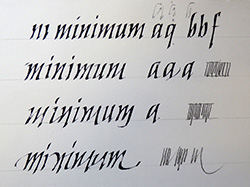 m minimum aq bbf
minimum aaa
minimum a
minimum